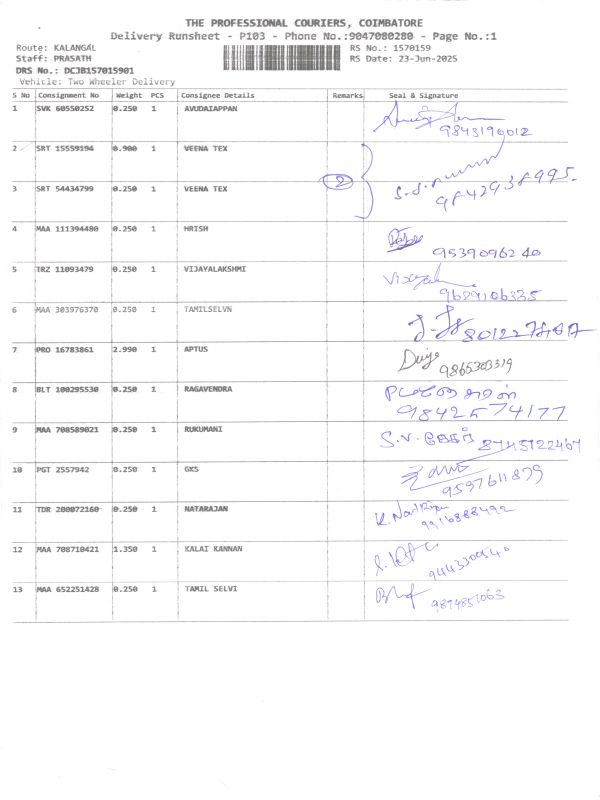 THE PROFESSIONAL COURIERS, COIMBATORE
Delivery Runsheet - P103 - Phone No.:9047080280 - Page No.:1
Route: KALANGAL RS No.: 1570159
Staff: PRASATH RS Date: 23-Jun-2025
DRS No.: DCJB157015901
Vehicle: Two Wheeler Delivery
S No Consignment No Weight PCS Consignee Details Remarks Seal & Signature
1 SVK 60550252 0.250 1 AVUDAIAPPAN
9843190012
2 SRT 15559194 0.900 1 VEENA TEX
3 SRT 54434799 0.250 1 VEENA TEX 2
4 MAA 111394480 0.250 1 HRISH
9539096240
5 TRZ 11093479 0.250 1 VIJAYALAKSHMI
9689106335
6 MAA 303976370 0.250 1 TAMILSELVN
7 PRO 16783861 2.990 1 APTUS
9865303319
8 BLT 100295530 0.250 1 RAGAVENDRA
9842574177
9 MAA 708589021 0.250 1 RUKUMANI S.V.
8745122467
10 PGT 2557942 0.250 1 GKS
9597611879
11 TDR 200072160 0.250 1 NATARAJAN
9916888492
12 MAA 708710421 1.350 1 KALAI KANNAN
9443300540
13 MAA 652251428 0.250 1 TAMIL SELVI
9894851063